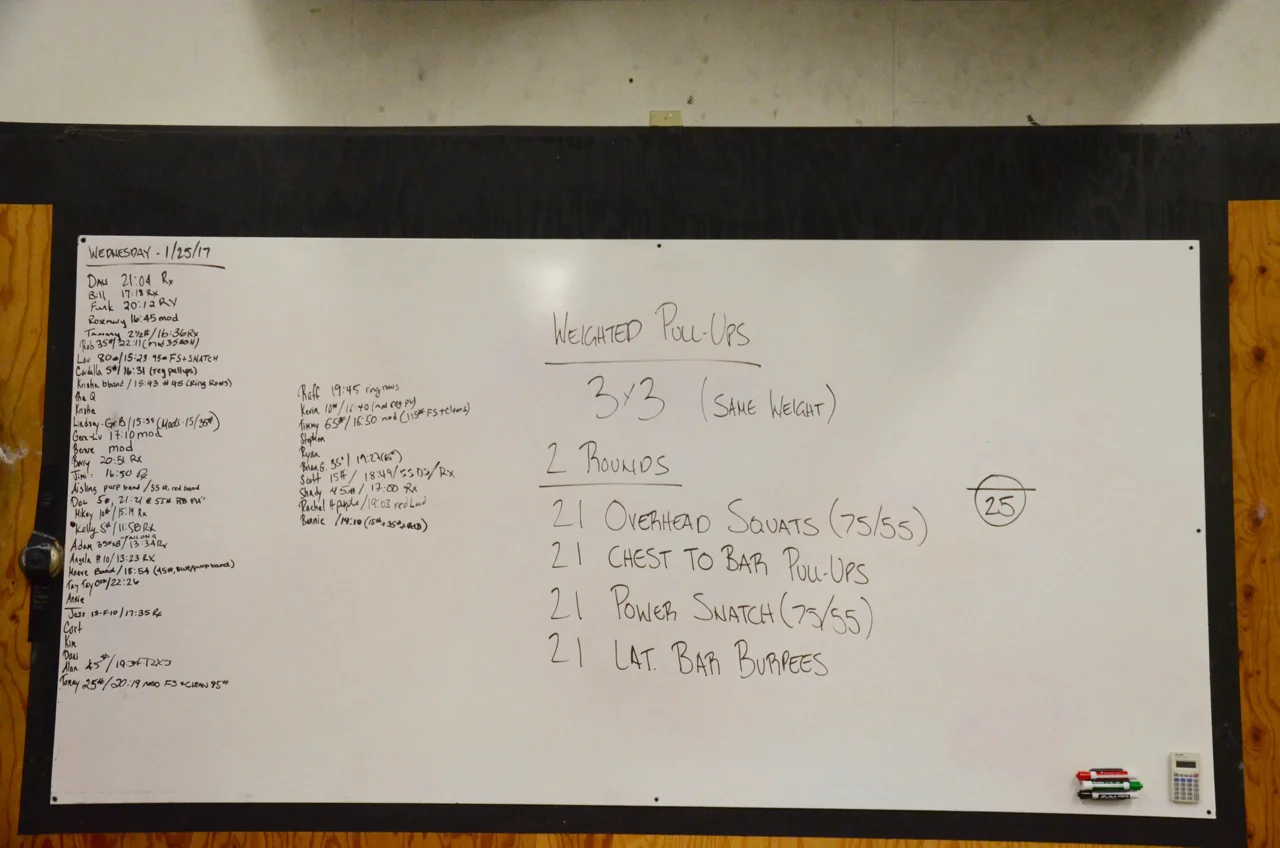 WEDNESDAY - 1/25/17
Dan 21:04 Rx
Bill 17:18 Rx
Funk 20:12 RX
Rosemary 16:45 mod
Tammary 2½# / 16:36 Rx
Rob 35# / 22:11 (mod 35#OH)
Lou 80# / 15:23 95# FS + SNATCH
Cordella 5# / 16:31 (reg pullups)
Krisha bband / 15:43 #45 (Ring Rows)
The Q
Krishe
Lindsay - GrB / 15:55 (Mods - 15/35#)
Gene-Lu 17:10 mod
mod
Barry 20:51 Rx
Jimi 16:50 Rx
Aisling purp band / 55#, red band
Doc 5#, 21:21 @ 55#
Mikey 10# / 15:11 Rx
*Kelly 5# / 11:58 RX
Adam 35# / 13:34 Rx
Angela #10 / 13:23 RX
Maeve Band / 18:54 (45#, blue/purp band)
Tay Tay 0# / 22:26
Annie
Jass / 17:35 Rx
Cort
Kim
Dani
Alan 45# / 19:34
Tommy 25# / 20:19 MOD FS + CLEAN 95#
Raff 19:45 ring rows
Kevin 10# / 16:40 (mod reg pu)
Timmy 65# / 16:50 mod (115# FS + Cleans)
Stephen
Ryan
Brian G. 35# / 19:27 (65#)
Scott 15# / 18:49 / SSD2 / RX
Shady 45# / 17:00 Rx
Rachel H purple / 19:03 red band
Bennie / 19:10 (15# + 35#
WEIGHTED PULL-UPS
3x3 (SAME WEIGHT)
2 ROUNDS
21 OVERHEAD SQUATS (75/55)
21 CHEST TO BAR PULL-UPS
21 POWER SNATCH (75/55)
21 LAT. BAR BURPEES
25